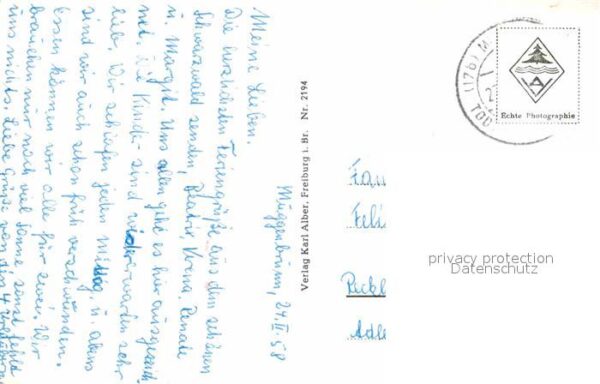 Müggenbrunn, 24.II.58
Meine Lieben.
Die herzlichsten Feriengrüße aus dem schönen
Schwarzwald senden, Beatrix, Verena, Renate
u. Margit. Uns allen geht es hier ausgezeich-
net. Die Kinder sind wieder
lieb. Wir schlafen jeden mittag, u. abens
sind wir auch schon früh verschwunden.
Essen können wir alle für zwei. Wir
brauchen nur noch viel Sonne sonst fehlt
uns nichts. Liebe Grüße von den 4
Verlag Karl Alber, Freiburg i. Br. Nr. 2194
(17b) M
TOD
A
Echte Photographie
Fam
Feli
privacy protection
Datenschutz
Peckl
Adle